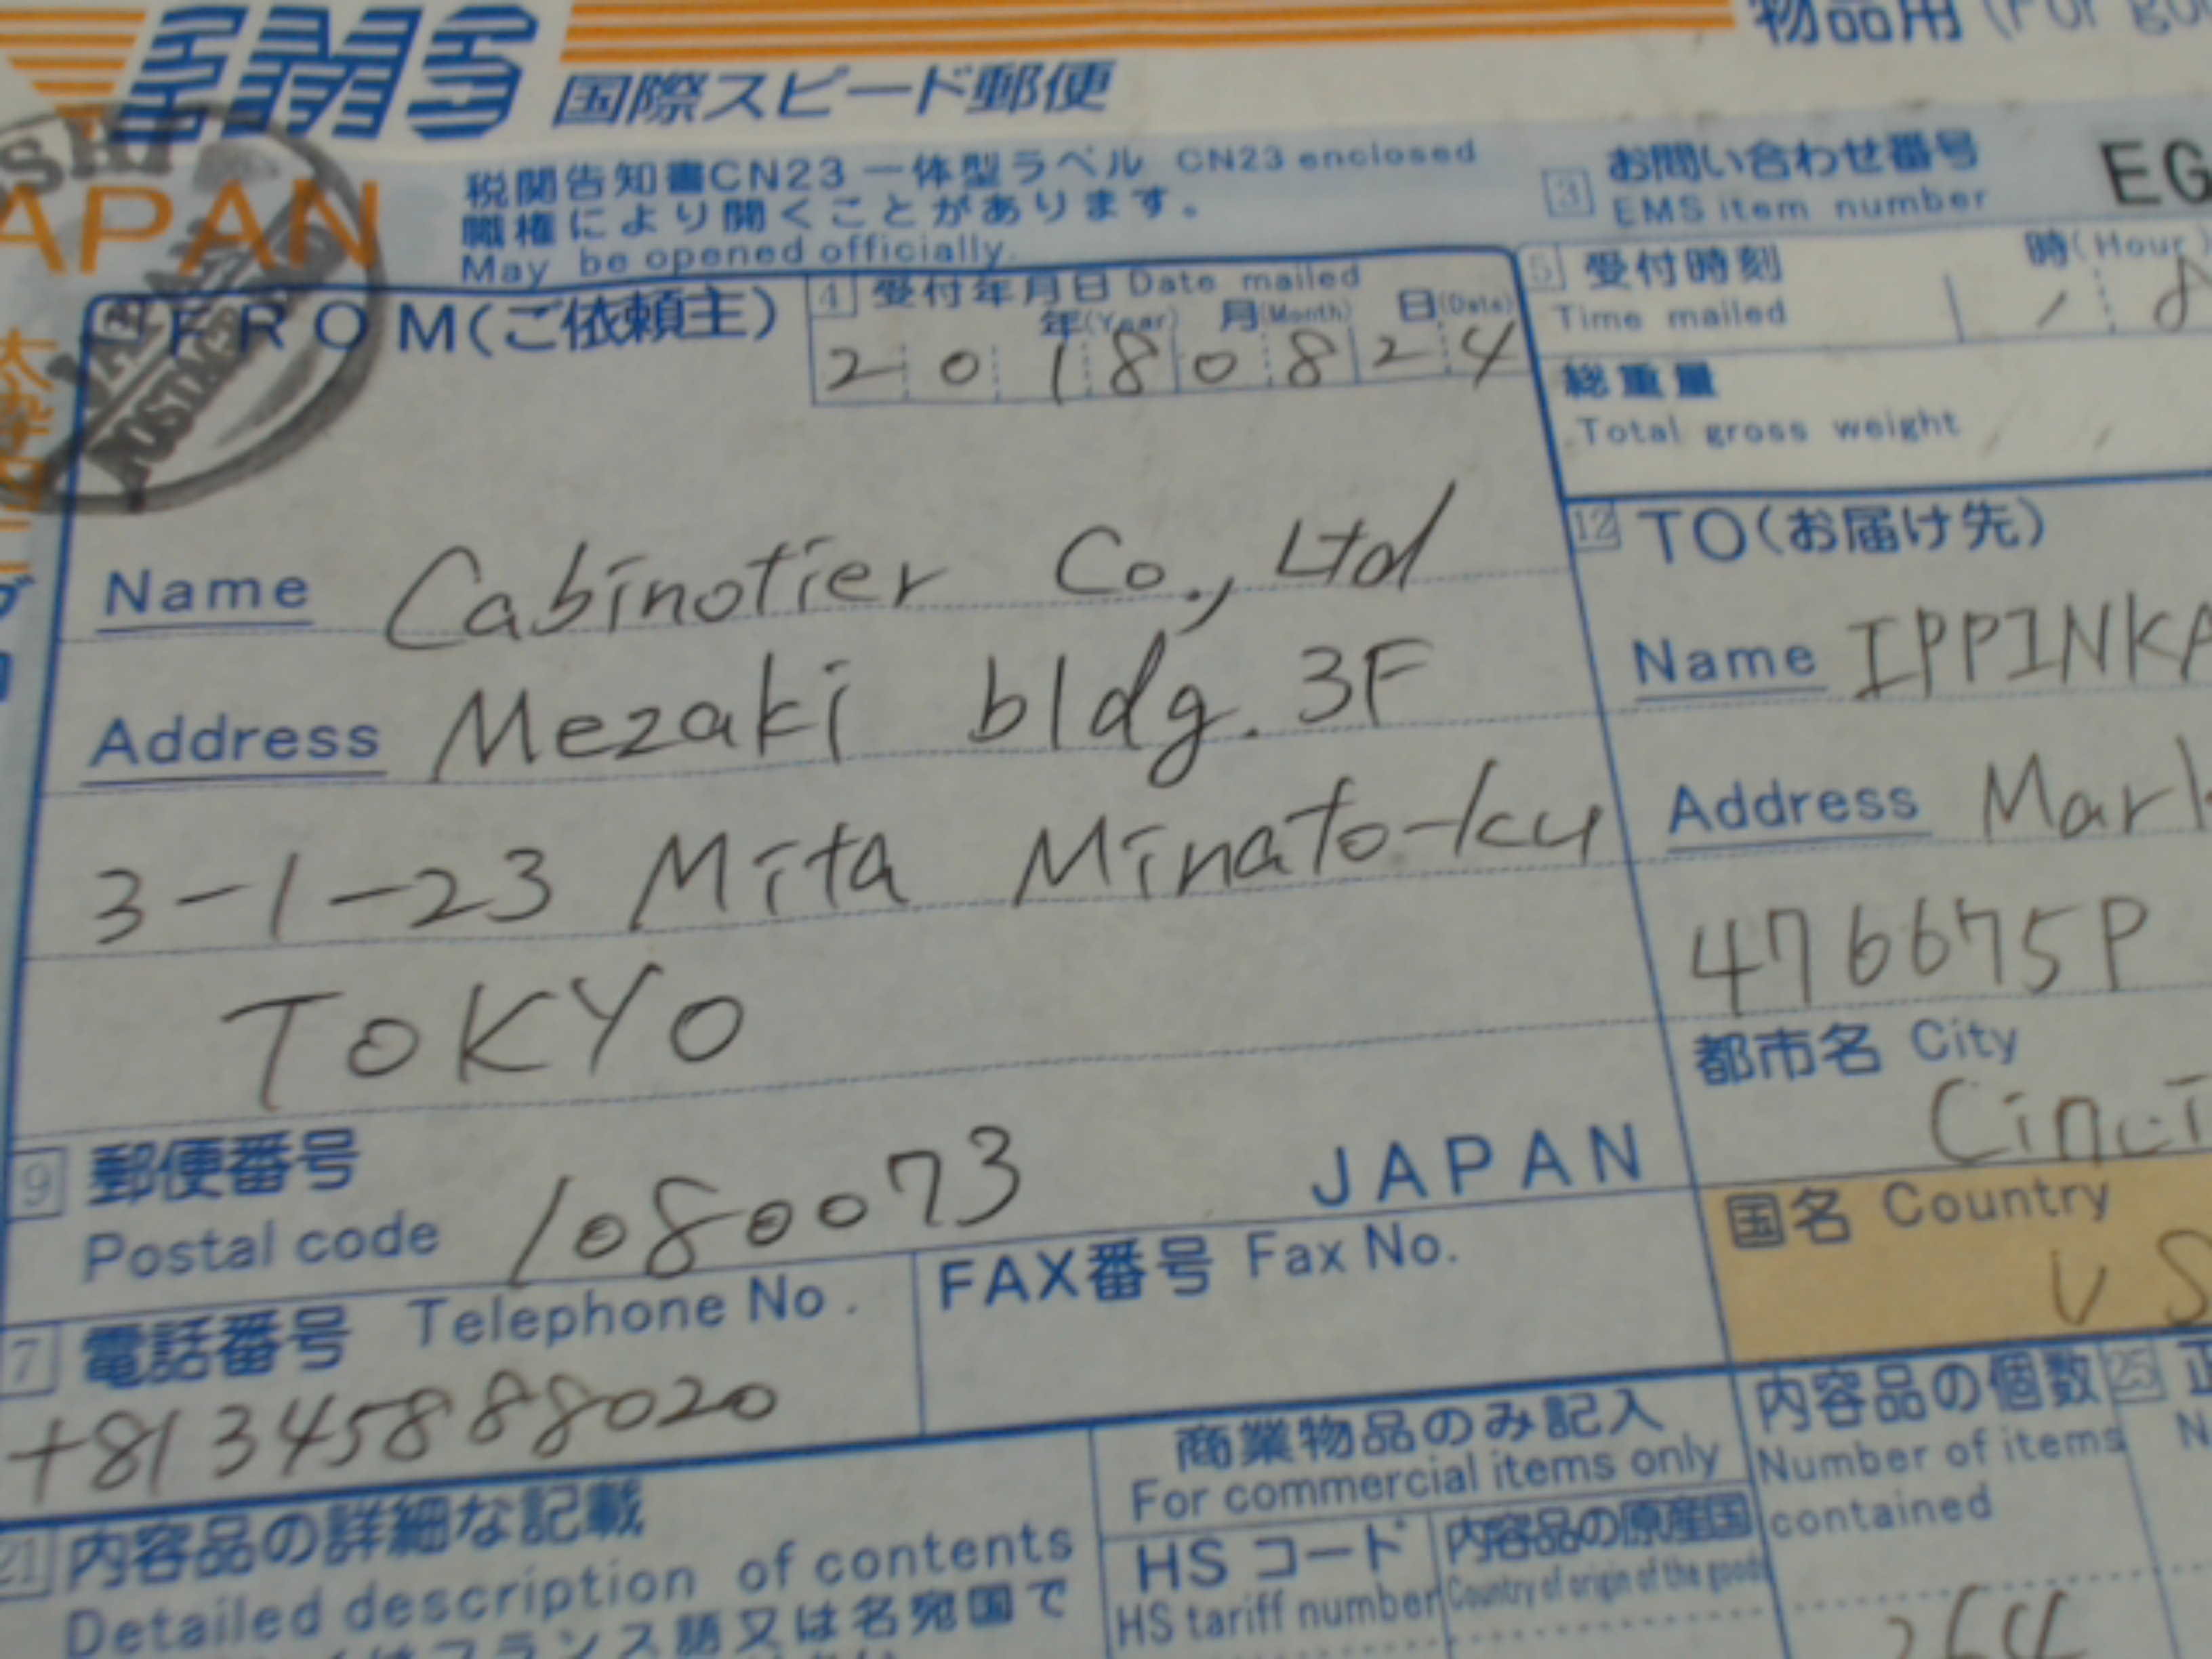 EMS 国際スピード郵便
物品用 (For
JAPAN
税関告知書CN23 一体型ラベル CN23 enclosed
職権により開くことがあります。
May be opened officially.
3 お問い合わせ番号 EG
EMS item number
FROM(ご依頼主)
4 受付年月日 Date mailed
年(Year) 月(Month) 日(Date)
20180824
5 受付時刻 時(Hour)
Time mailed
総重量
Total gross weight
Name Cabinotier Co., Ltd
Address Mezaki bldg. 3F
3-1-23 Mita Minato-ku
TOKYO
9 郵便番号
Postal code 1080073 JAPAN
7 電話番号 Telephone No.
+81345888020
FAX番号 Fax No.
12 TO(お届け先)
Name IPPINKA
Address Mark
476675P
都市名 City
Cinci
国名 Country
US
21 内容品の詳細な記載
Detailed description of contents
フランス語又は名宛国で
商業物品のみ記入
For commercial items only
HS コード
HS tariff number
内容品の原産国
Country of origin of the goods
内容品の個数
Number of items
contained
25
264